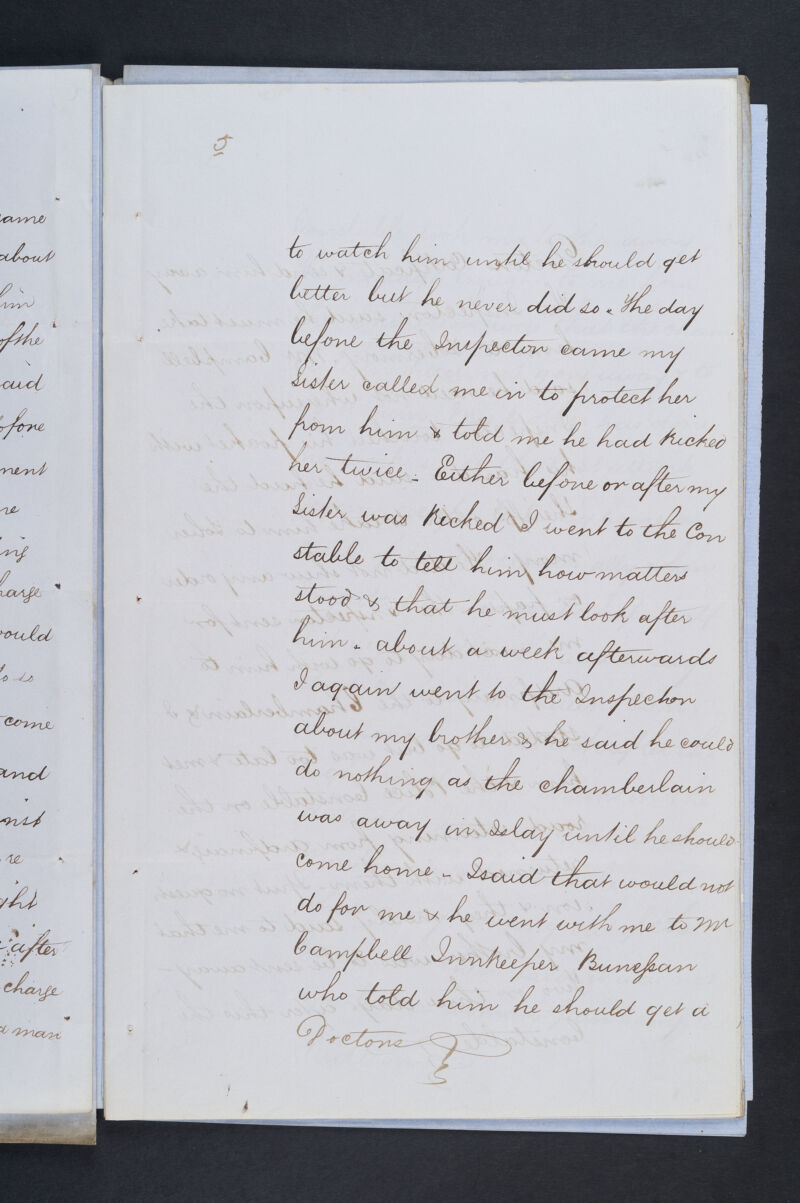 5
to watch him until he should get
better but he never did so. The day
before the Inspector came my
Sister called me in to protect her
from him & told me he had kicked
her twice. Either before or after my
Sister was kicked I went to the Con
stable to tell him how matters
stood & that he must look after
him. about a week afterwards
I again went to the Inspector
about my brother & he said he could
do nothing as the chamberlain
was away in Islay until he should
come home - I said that would not
do for me & he went with me to Mr
Campbell Innkeeper Bunessan
who told him he should get a
Doctors
ame
about
him
of the
said
ofore
ment
ne
ing
harge
would
to so
come
and
inst
re
ght
after
charge
a man